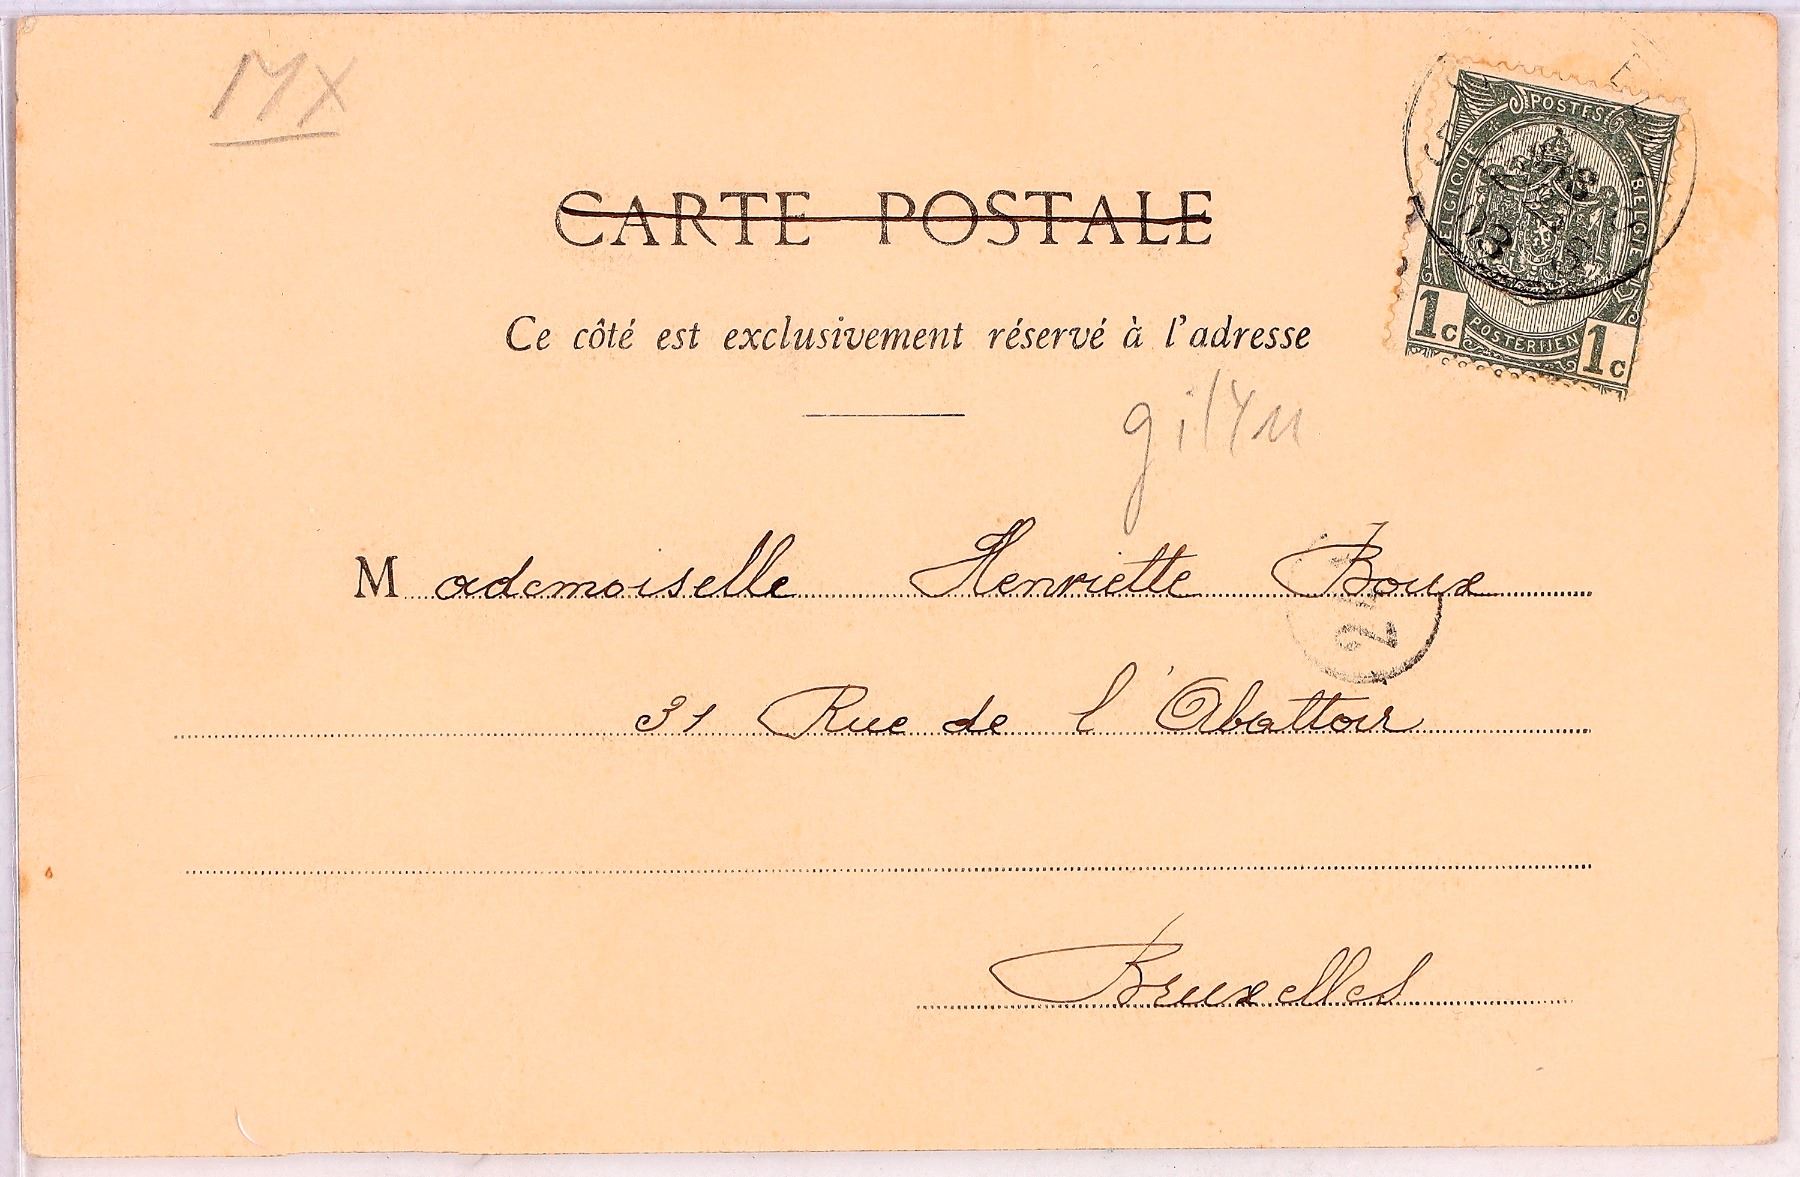 MX
POSTES
BELGIQUE
BELGIE
POSTERIJEN
1c 1c
CARTE POSTALE
Ce côté est exclusivement réservé à l'adresse
Mademoiselle Henriette Boux
2
31 Rue de l'Abattoir
Bruxelles